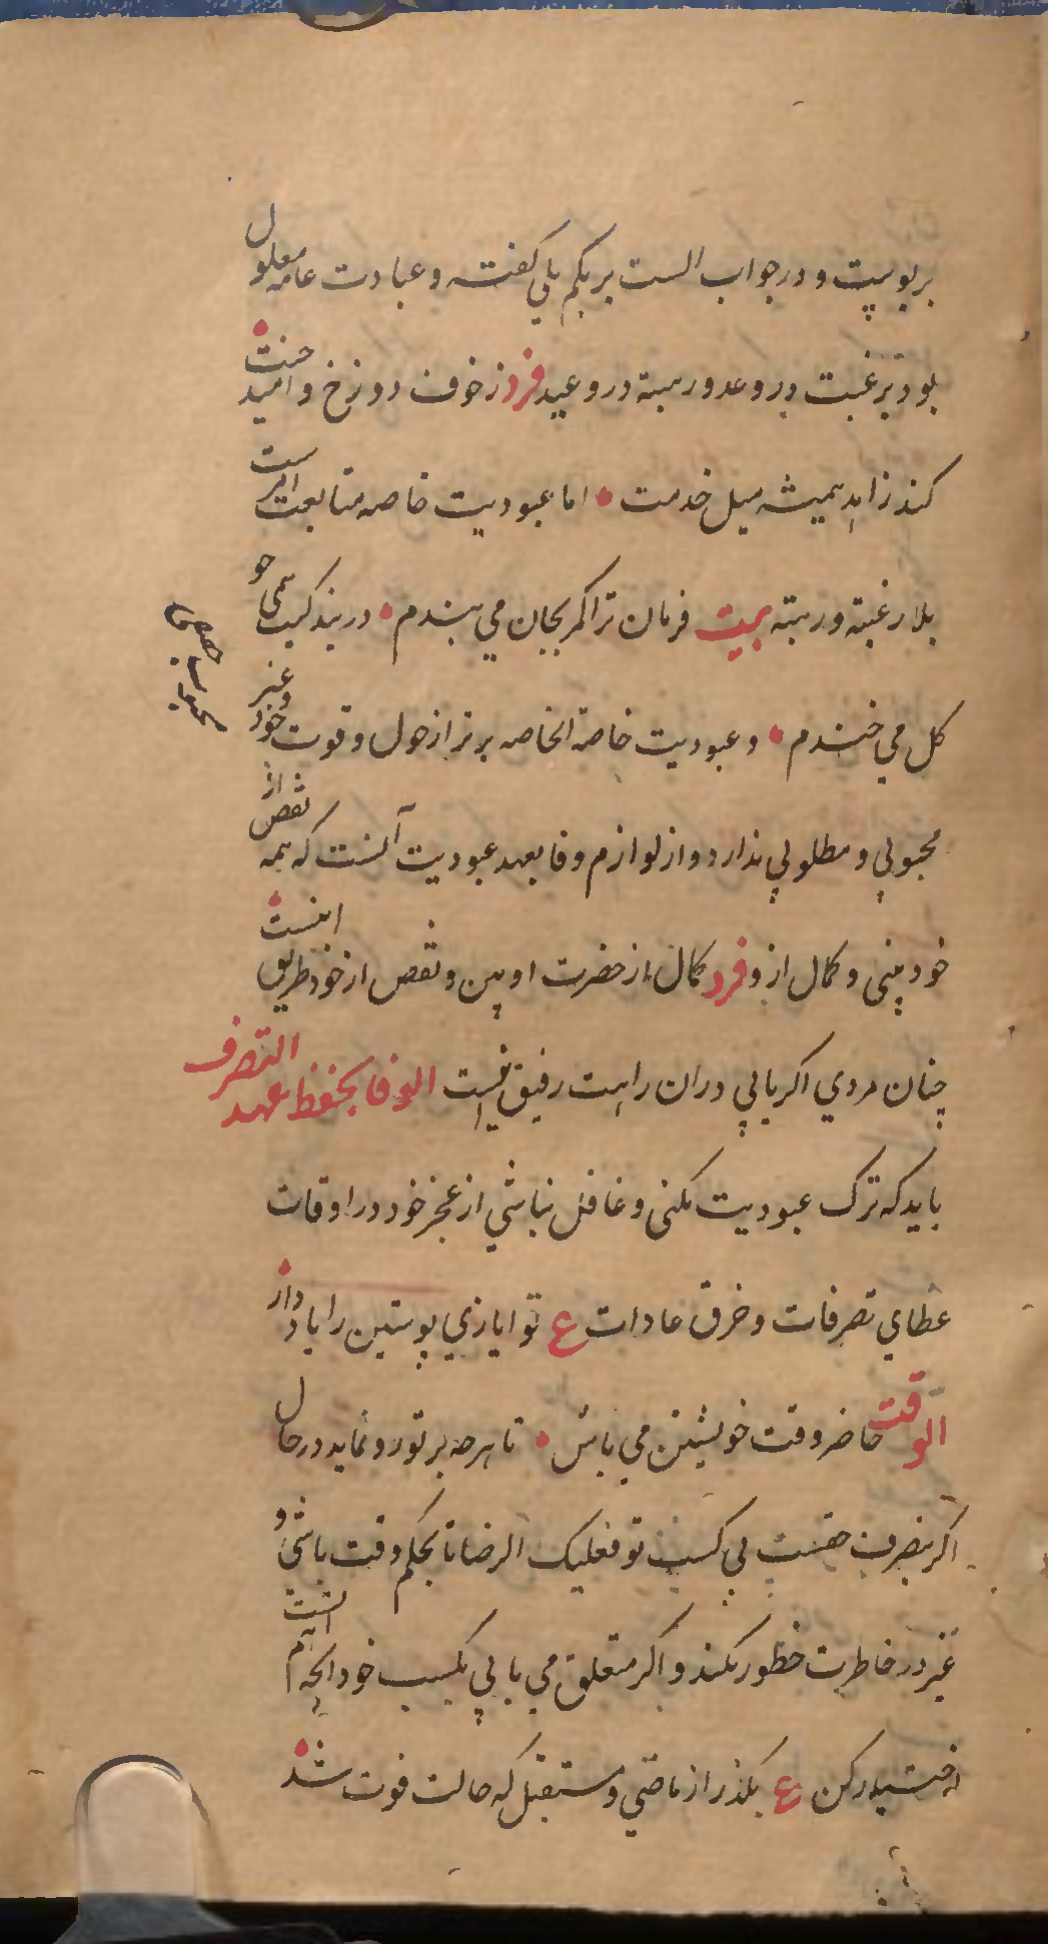 بربوبیت و در جواب الست بربکم بلی گفته و عبادت عامه معلول
بود برغبت در وعد و رهبة در وعید فرد ز خوف دوزخ و امید جنت
کند زاهد همیشه میل خدمت اما عبودیت خاصه متابعت امرست
بلا رغبته و رهبته بیت فرمان ترا کمر بجان می بندم در بندگیت همی چو
کل می خندم و عبودیت خاصة الخاصه برتر از حول و قوت خود و غیر
محبوبی و مطلوبی ندارد و از لوازم وفا بعهد عبودیت آنست که همه نقص از
خود بینی و کمال ازو فرد کمال از حضرت او بین و نقص از خود طریق اینست
چنان مردی اگر یابی دران راهت رفیق اینست الوفا بحفظ عهد التصرف
باید که ترک عبودیت نکنی و غافل نباشی از عجز خود در اوقات
عطای تصرفات و خرق عادات ع تو ایازی پوستین را یاد دار
الوقت حاضر وقت خویشتن می باش تا هرچه بر تو رو نماید در حال
اگر بتصرف حقست بی کسب تو فعلیک الرضا تا بحکم وقت باشی و
غیر در خاطرت خطور نکند و اگر متعلق می یابی بکسب خود آنچه اهم است
ع بگذر از ماضی و مستقبل که حالت فوت شد